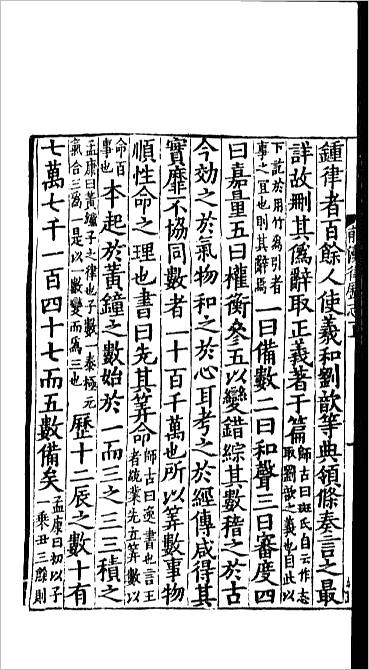 鍾律者百餘人使羲和劉歆等典領條奏言之最
詳故刪其僞辭取正義著于篇師古曰班氏自云作志取劉歆之義也自此以
下訖於用竹為引者事之宜也則其辭焉一曰備數二曰和聲三曰審度四
曰嘉量五曰權衡參五以變錯綜其數稽之於古
今効之於氣物和之於心耳考之於經傳咸得其
實靡不協同數者一十百千萬也所以筭數事物
順性命之理也書曰先其筭命師古曰逸書也言王者統業先立筭數以
命百事也本起於黃鐘之數始於一而三之三三積之
孟康曰黃鐘子之律也子數一泰極元氣含三為一是以一數變而為三也歷十二辰之數十有
七萬七千一百四十七而五數備矣孟康曰初以子一乘丑三餘則